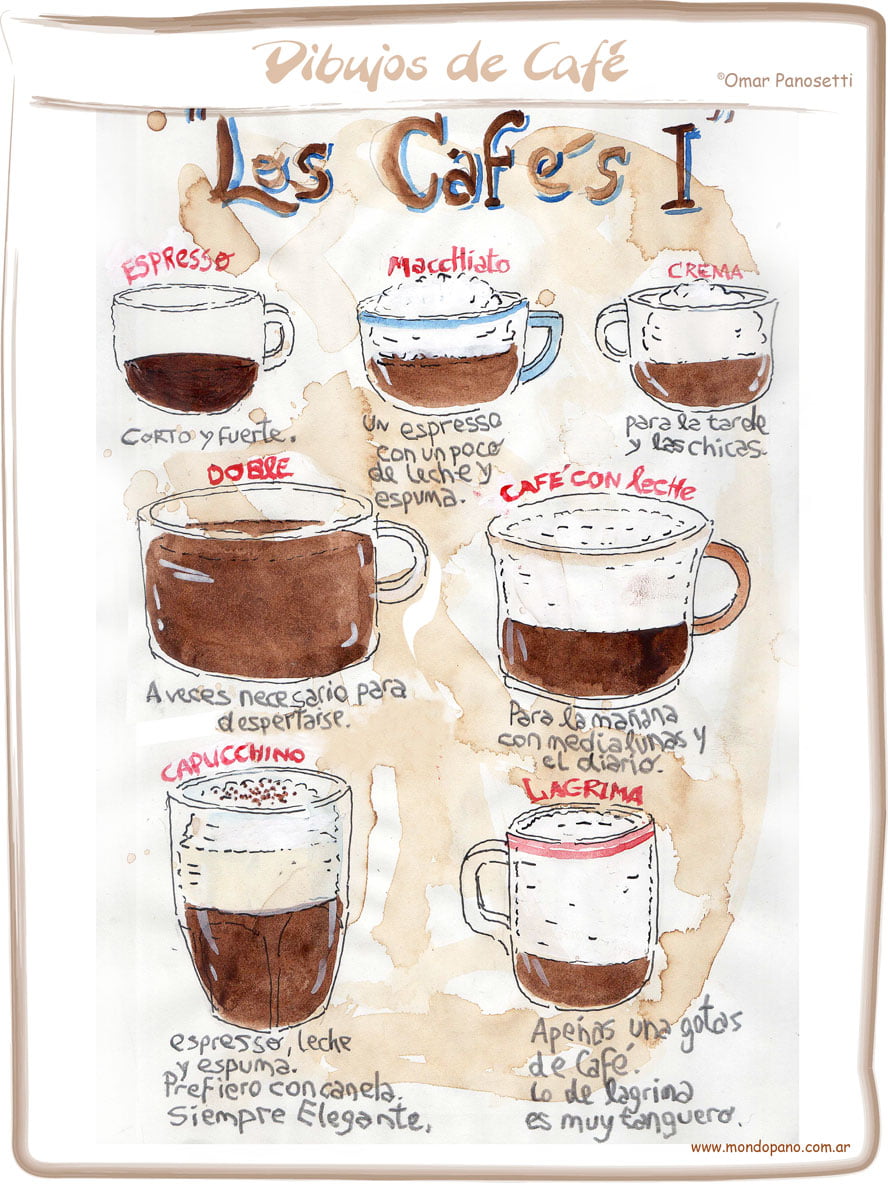 Dibujos de Café
©Omar Panosetti
"Los Café's I"
ESPRESSO
CORTO y Fuerte.
MaccHiato
UN espresso
con un poco
de leche y
espuma.
CREMA
para la tarde
y las chicas.
DOBlE
A veces necesario para
despertarse.
CAFÉ CON lecHe
Para la mañana
con medialunas y
el diario.
CAPUCCHINO
espresso, leche
y espuma.
Prefiero con canela.
Siempre Elegante.
LAGRIMA
Apenas una gotas
de Café.
Lo de lagrima
es muy tanguero.
www.mondopano.com.ar